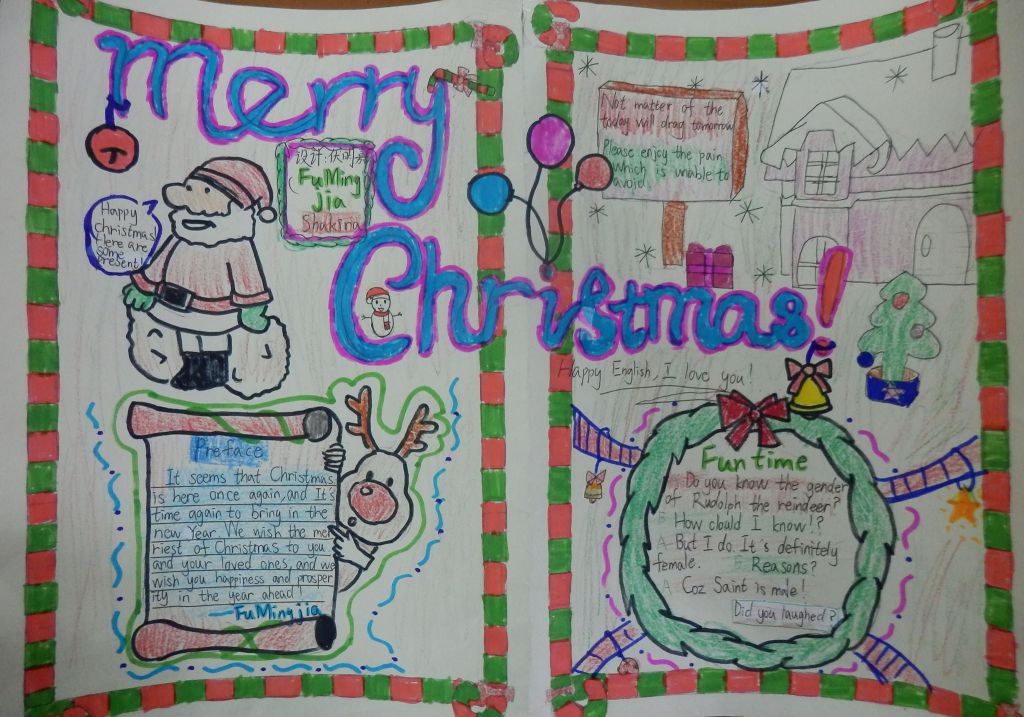 Merry
Christmas!
设计:伏明嘉
FuMing
jia
Shakira
Happy
christmas!
Here are
some
present!
Not matter of the
today will drag tomorrow
Please enjoy the pain
which is unable to
avoid.
Happy English, I love you!
Preface
It seems that Christmas
is here once again, and It's
time again to bring in the
new Year. We wish the mer
riest of Christmas to you
and your loved ones, and we
wish you happiness and prosper
ity in the year ahead!
—FuMingjia
Fun time
A: Do you know the gender
of Rudolph the reindeer?
B: How could I know!?
A: But I do. It's definitely
female. B: Reasons?
A: Coz Saint is male!
Did you laughed?